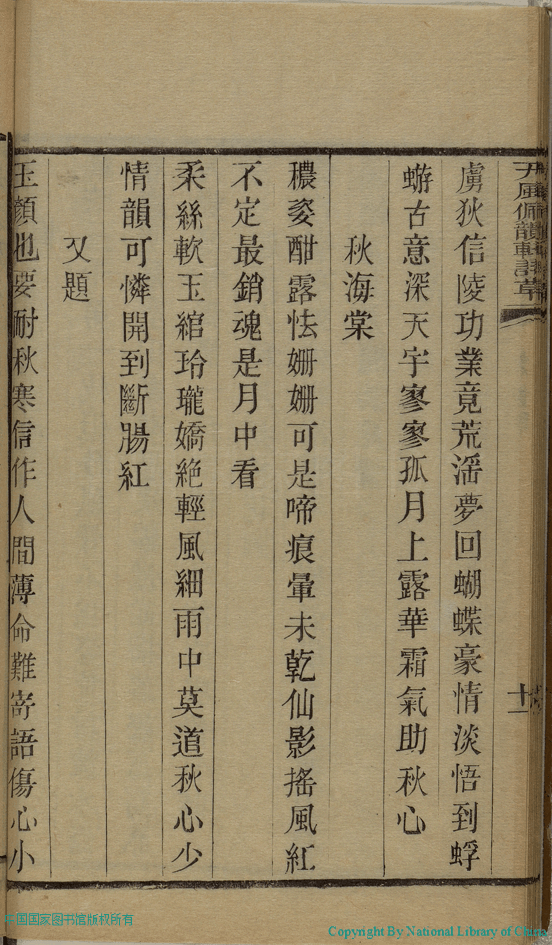 虜狄信陵功業竟荒滛夢回蝴蝶豪情淡悟到蜉
蝣古意深天宇寥寥孤月上露華霜氣助秋心
秋海棠
穠姿酣露怯姍姍可是啼痕暈未乾仙影搖風紅
不定最銷魂是月中看
柔絲軟玉綰玲瓏嬌絶輕風細雨中莫道秋心少
情韻可憐開到斷腸紅
又題
玉顏也要耐秋寒信作人間薄命難寄語傷心小
十一
国国家图书馆版权所有
Copyright By National Library of China